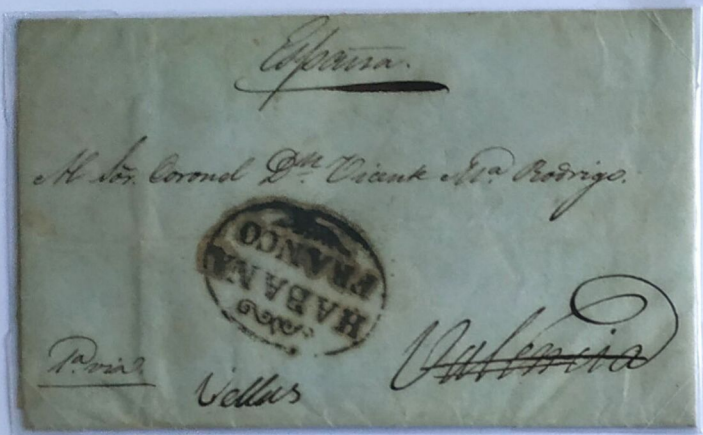 España.
Al Sor. Coronel Dn. Vicente Ma. Rodrigo.
HABANA
FRANCO
1a via.
Vellus
Valencia